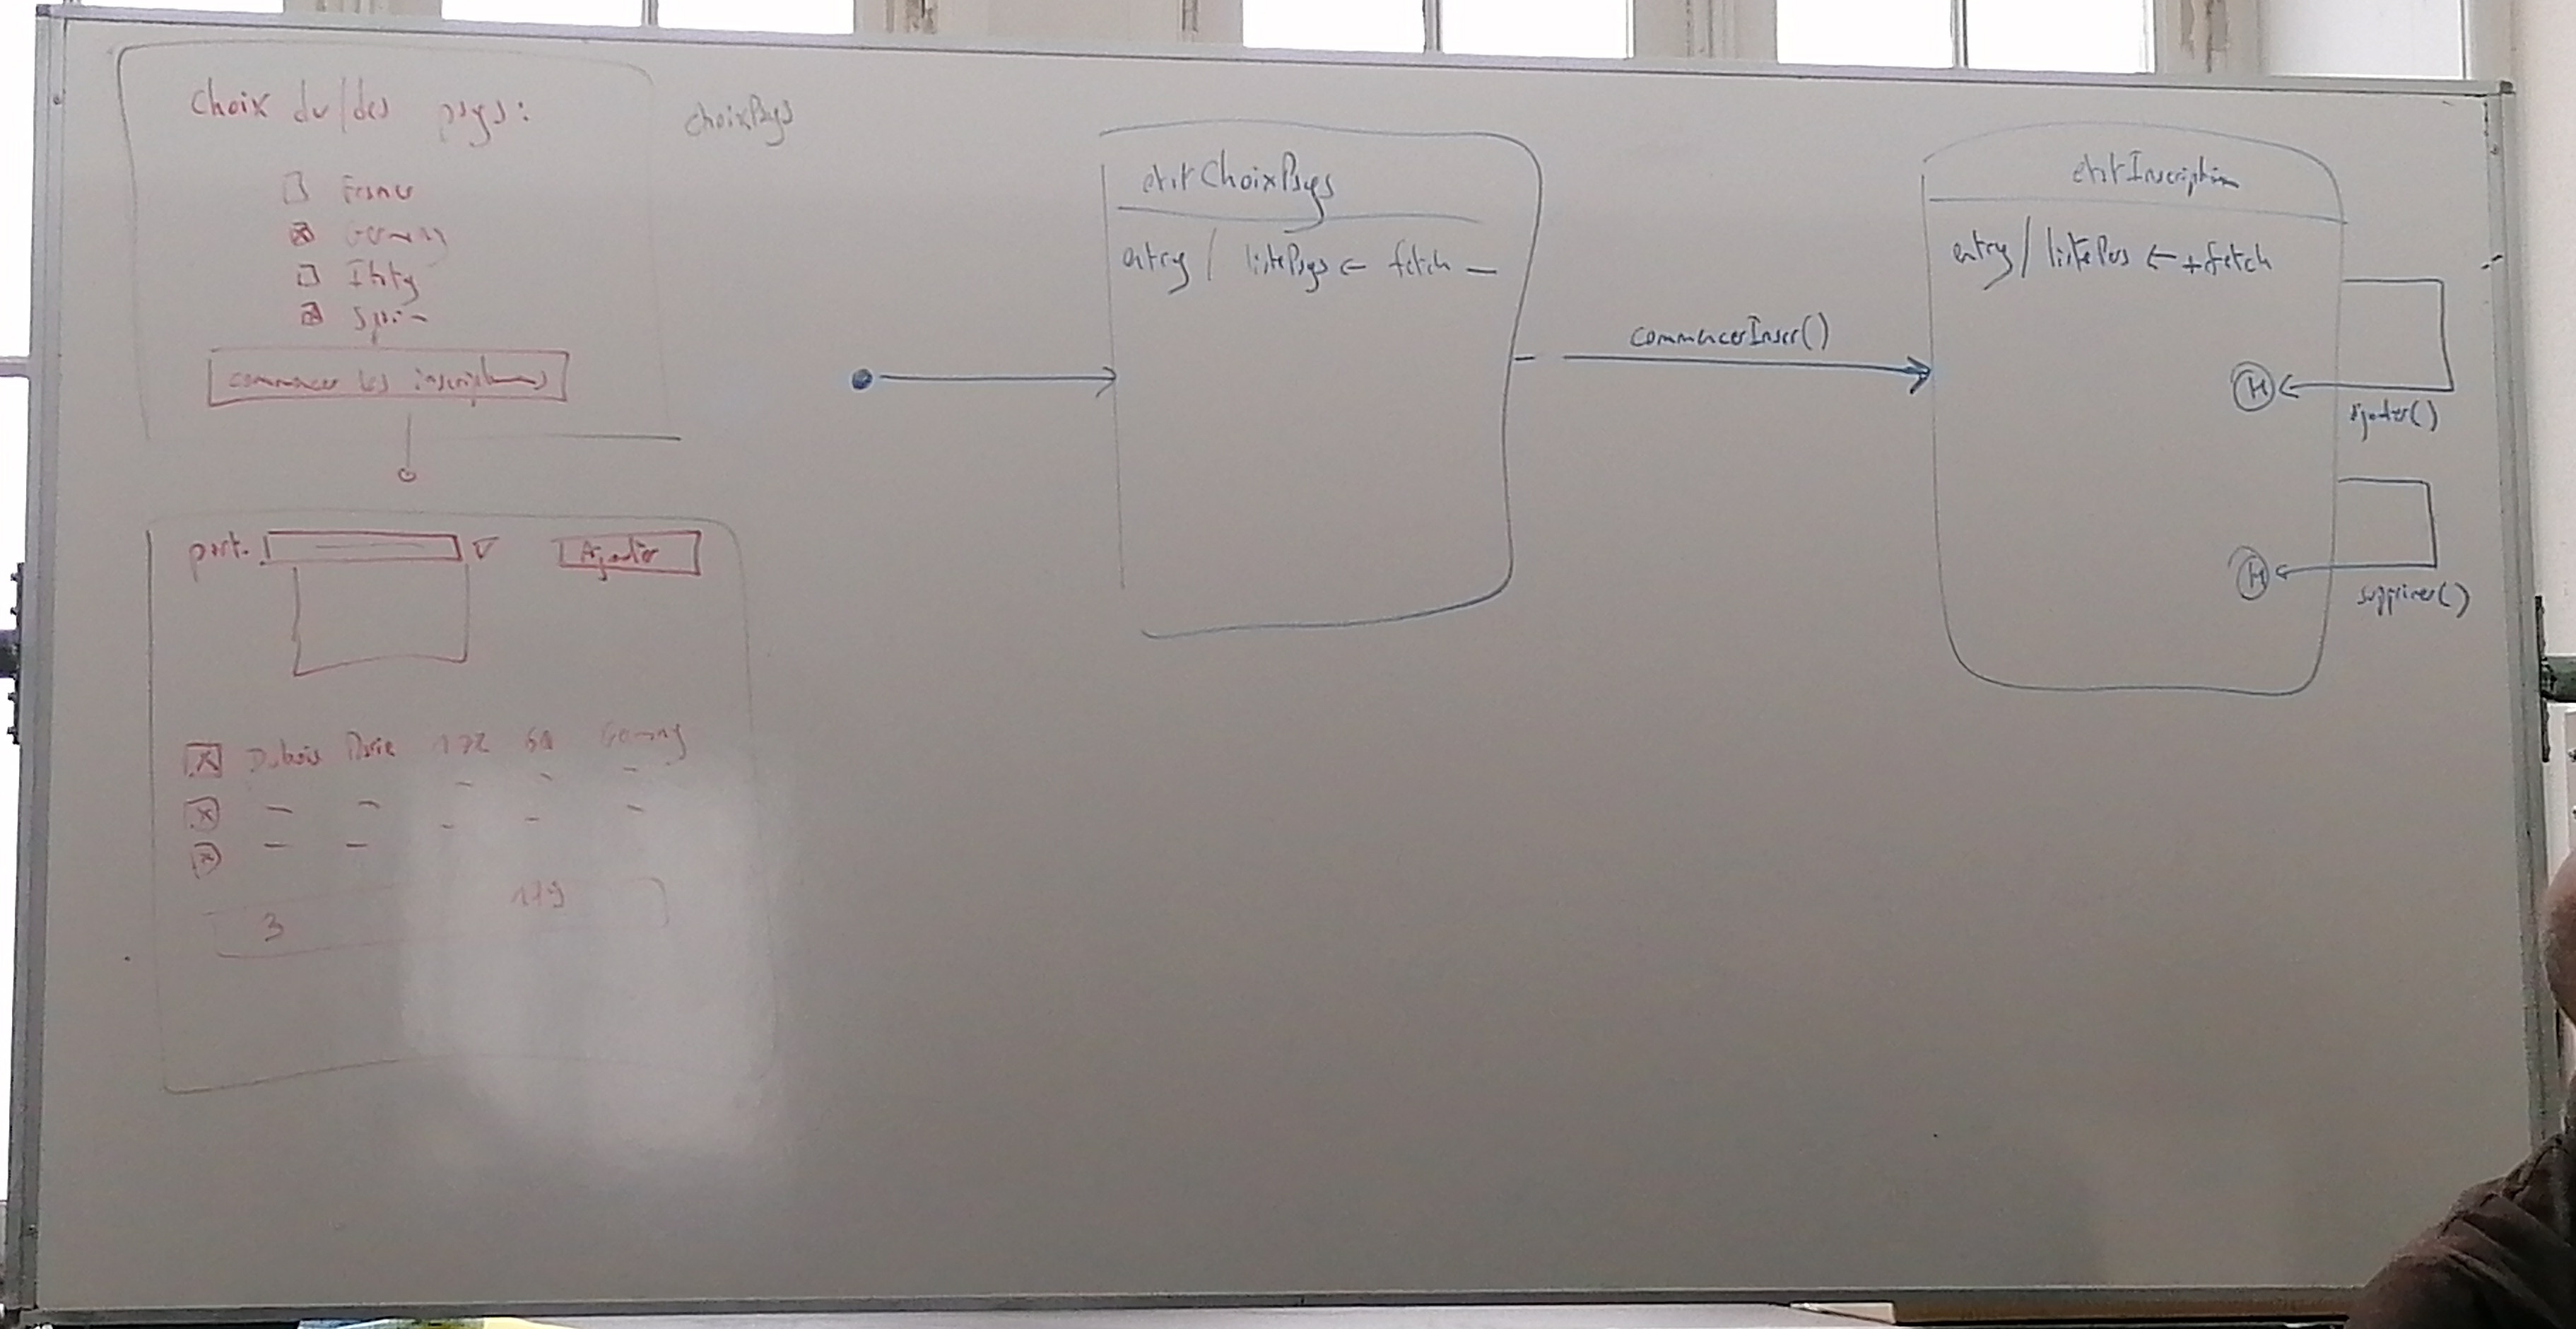 Choix du/des pays:
choixPays
France
Germany
Italy
Spain
commencer les inscriptions
part.
Ajouter
Dubois Marie 172 60 Germany
3 179
etatChoixPays
entry / listePays ← fetch —
commencerInscr()
etatInscription
entry / listePers ← + fetch
H
ajouter()
H
supprimer()